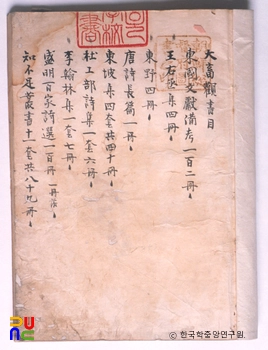 大畜觀書目
東國文獻備考一百二冊
王右丞集四冊
東野四冊
唐詩長篇一冊
東坡集四套共四十冊
杜工部詩集一套六冊
李翰林集一套七冊
盛明百家詩選一百冊 一冊落
知不足叢書十一套共八十九冊
ⓒ한국학중앙연구원